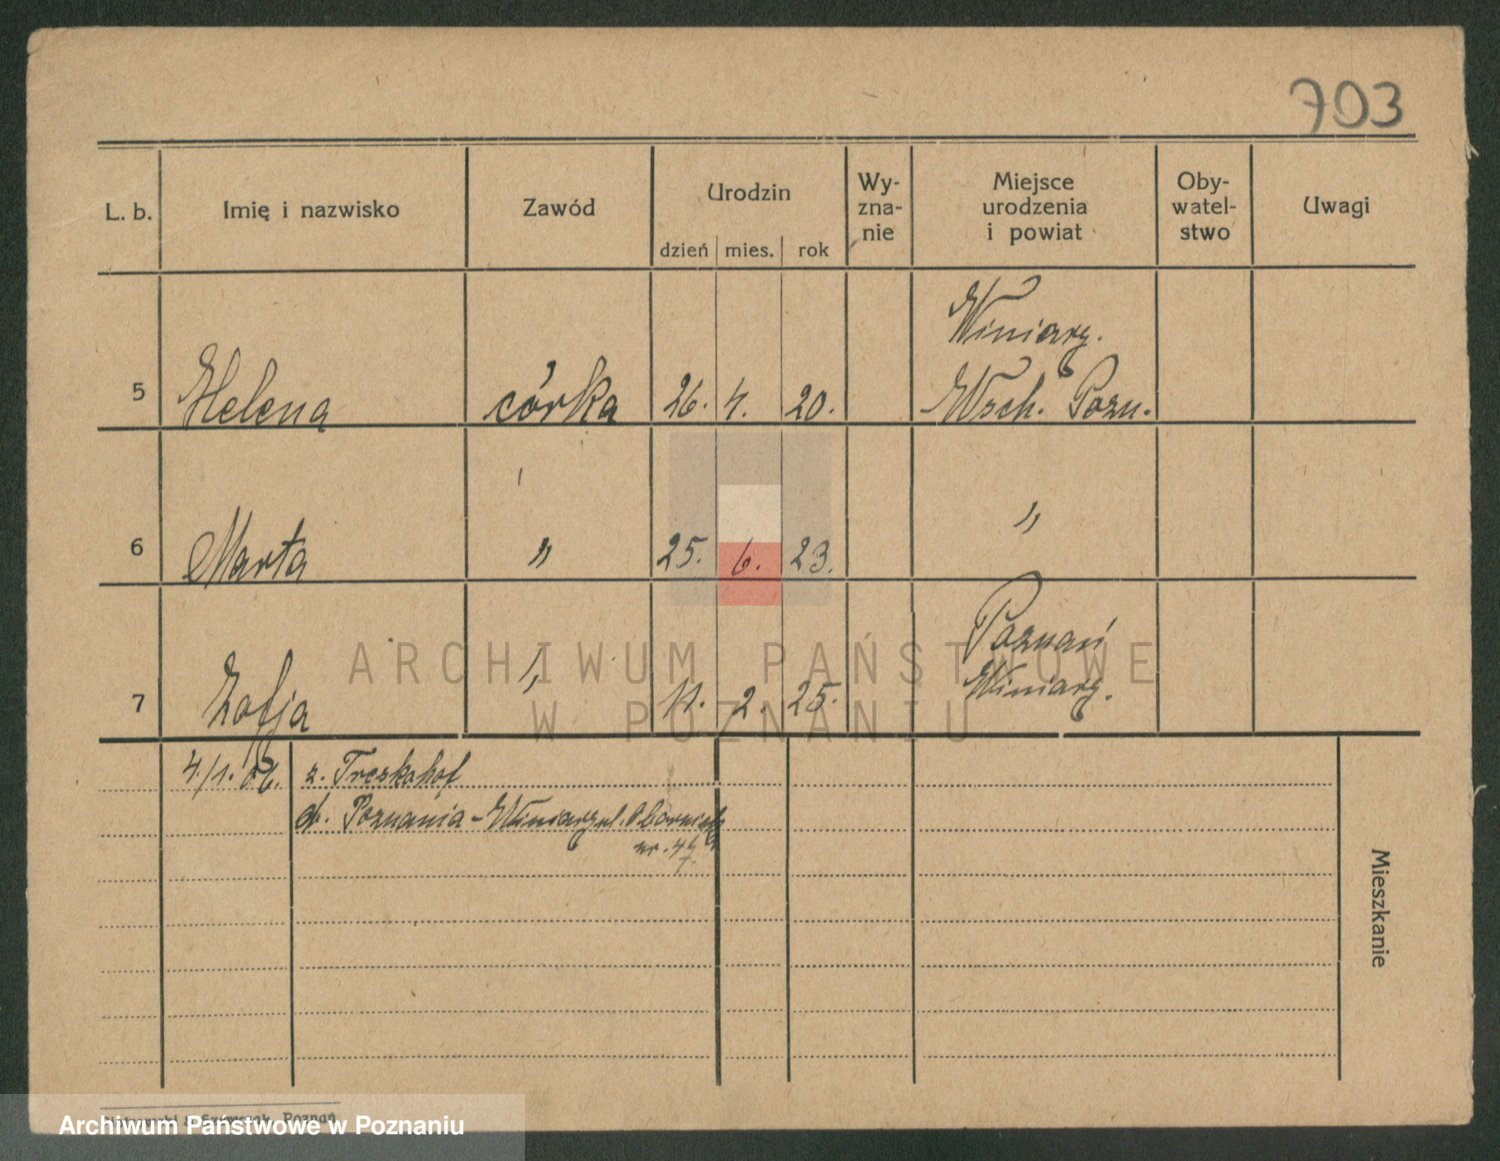 703
L. b. Imię i nazwisko Zawód Urodzin dzień mies. rok Wy-zna-nie Miejsce urodzenia i powiat Oby-watel-stwo Uwagi
Winiary.
5 Helena córka 26. 4. 20. Wsch. Pozn.
6 Marta " 25. 6. 23. "
Poznań
7 Zofja " 11. 2. 25. Winiary.
4/1. 06. z. Treskahof
d. Poznania - Winiary ul. Obornick
nr. 47
Mieszkanie
Szymczak, Poznań
ARCHIWUM PAŃSTWOWE
W POZNANIU
Archiwum Państwowe w Poznaniu